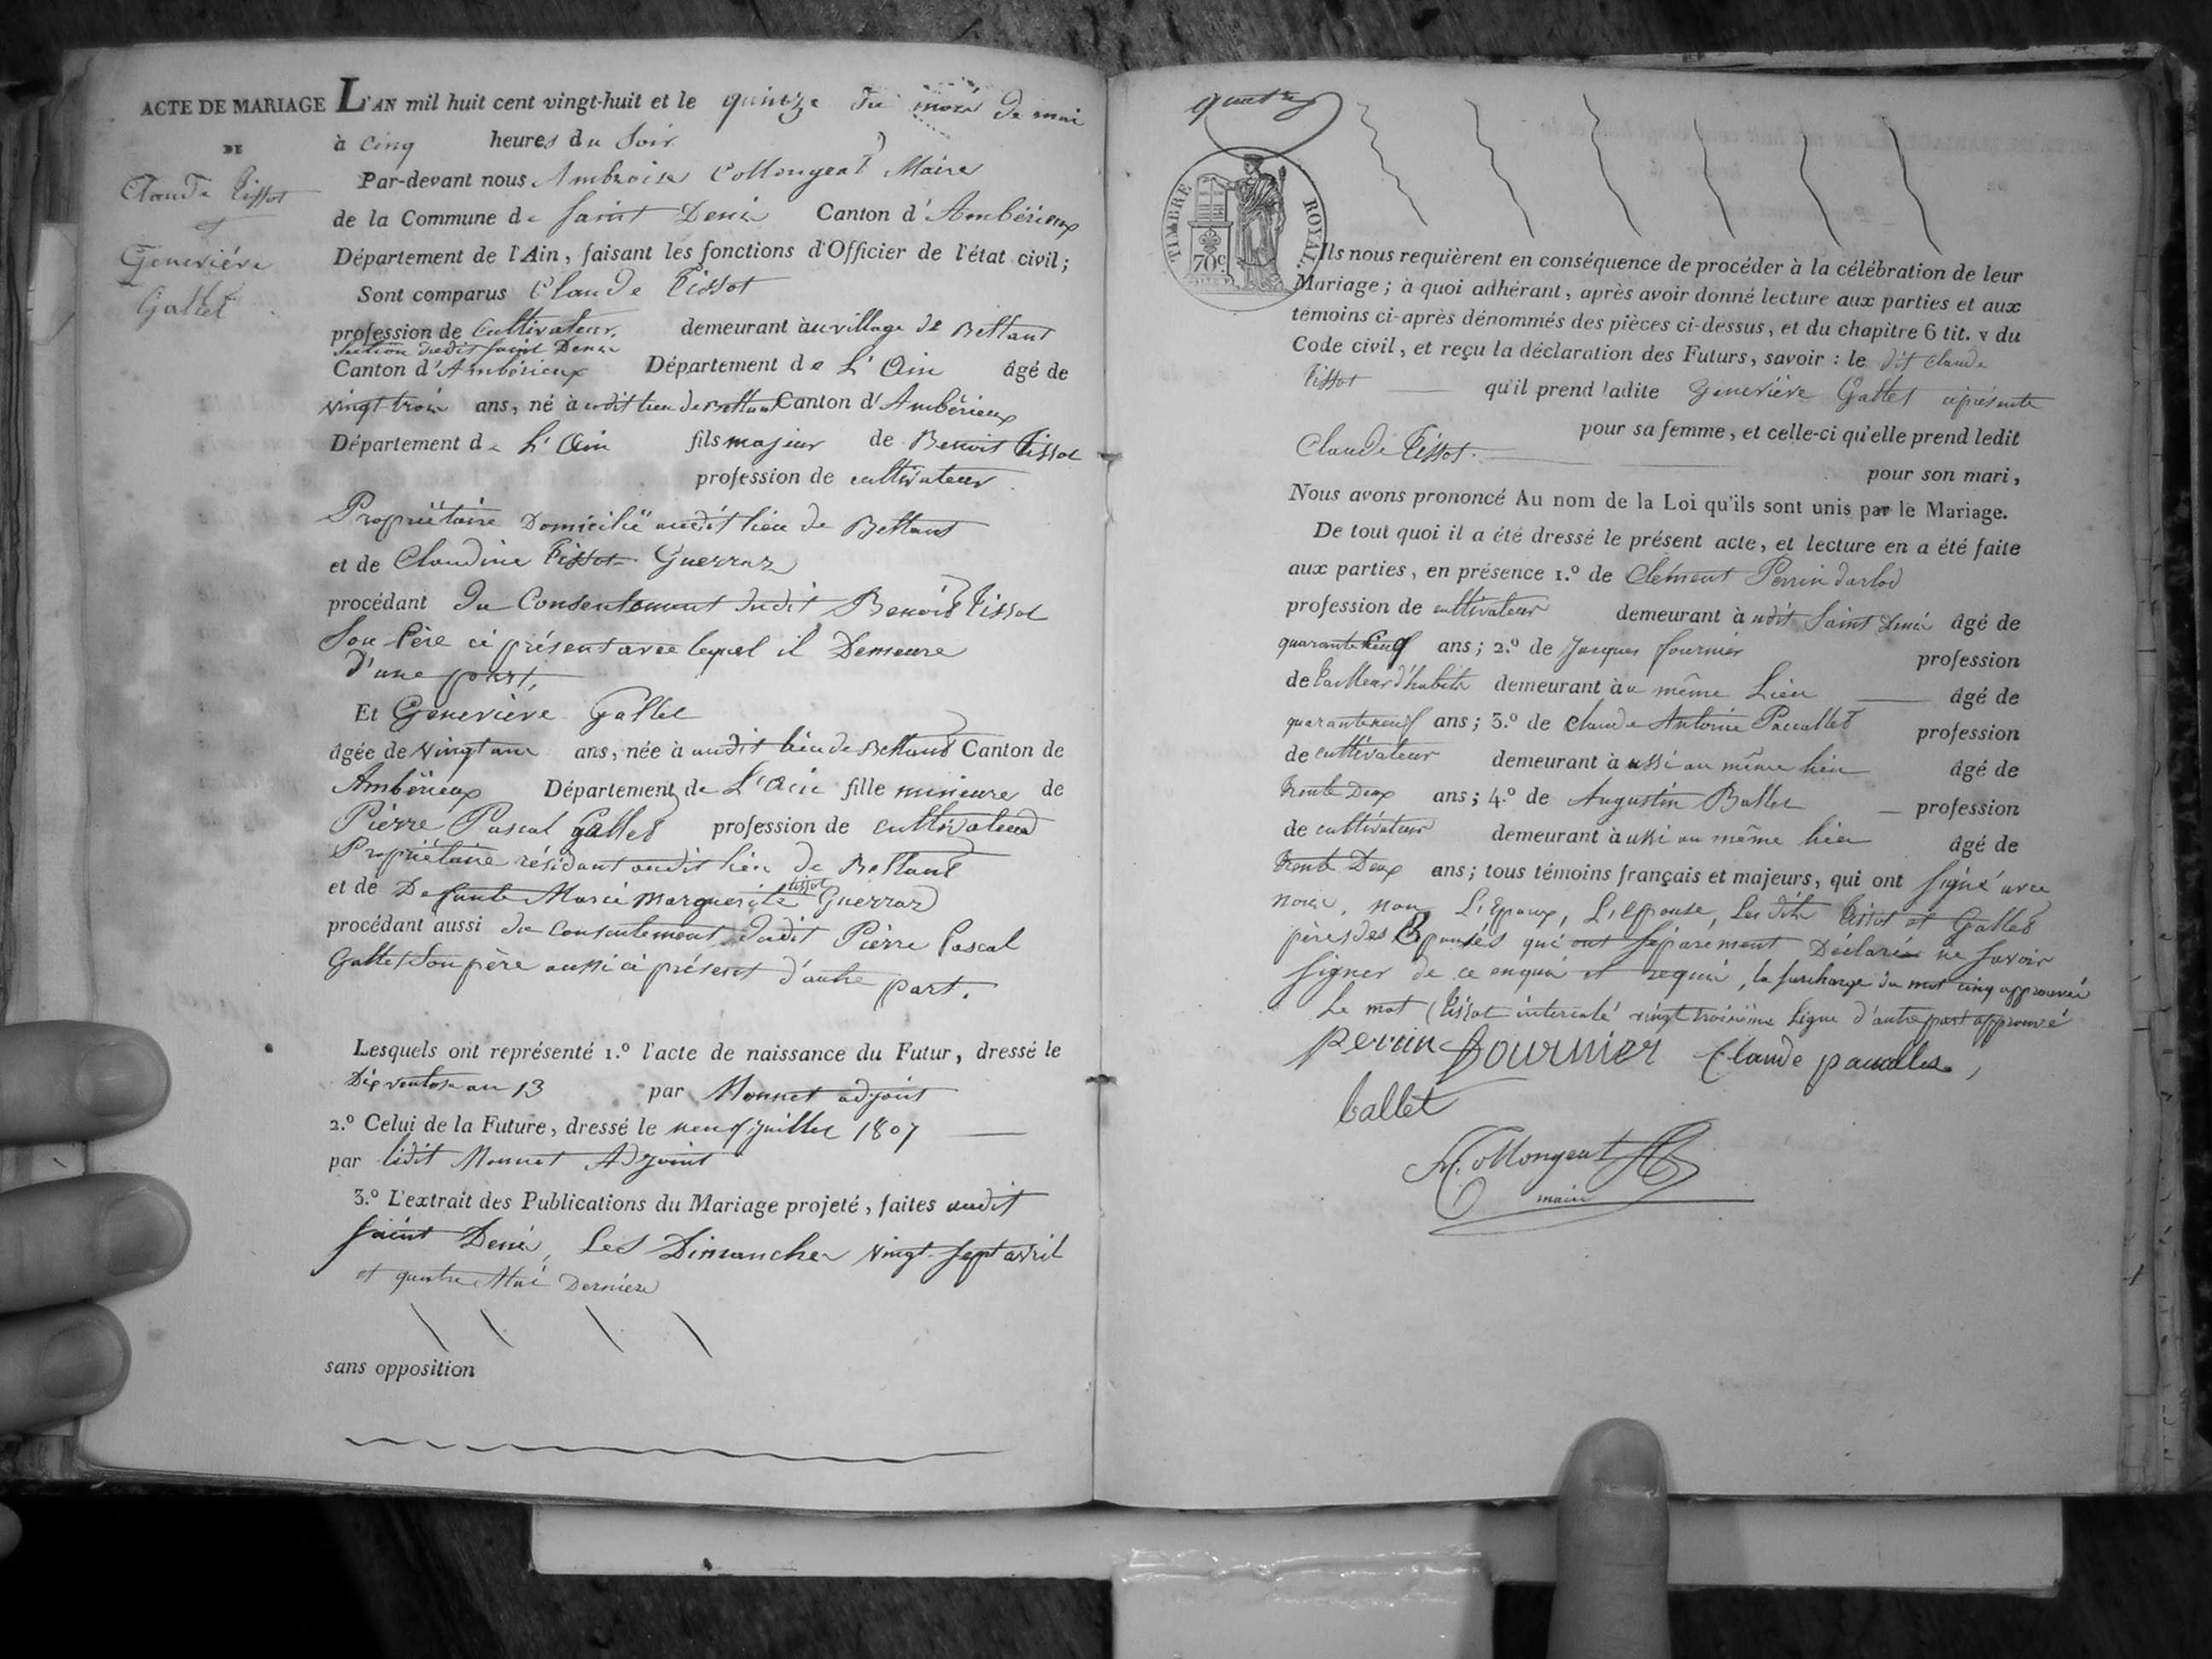 ACTE DE MARIAGE L'AN mil huit cent vingt-huit et le quinze du mois de mai
DE
Claude Tissot
et
Geneviève
Gallet
à cinq heures du Soir
Par-devant nous Ambroise Collongeat Maire
de la Commune de Saint Denis Canton d'Ambérieux
Département de l'Ain, faisant les fonctions d'Officier de l'état civil;
Sont comparus Claude Tissot
profession de Cultivateur, demeurant au village de Bettant
Section dudit Saint Denis
Canton d'Ambérieux Département de L'Ain âgé de
vingt trois ans, né à udit lieu de Bettant Canton d'Ambérieux
Département de L'Ain fils majeur de Benoit Tissot
profession de cultivateur
Propriétaire Domicilié audit lieu de Bettant
et de Claudine Tissot Guerraz
procédant du Consentement dudit Benoit Tissot
Son Père ci présent avec lequel il Demeure
d'une part,
Et Geneviève Gallet
âgée de vingt ans ans, née à audit lieu de Bettant Canton de
Ambérieux Département de L'Ain fille mineure de
Pierre Pascal Gallet profession de cultivateur
Propriétaire résidant audit lieu de Bettant
et de Defunte Marie Marguerite Tissot Guerraz
procédant aussi du consentement dudit Pierre Pascal
Gallet Son père aussi ci présent d'autre part.
Lesquels ont représenté 1.º l'acte de naissance du Futur, dressé le
Dix ventose an 13 par Monnet adjoint
2.º Celui de la Future, dressé le neuf juillet 1807
par ledit Monnet Adjoint
3.º L'extrait des Publications du Mariage projeté, faites audit
Saint Denis, Les Dimanches vingt-sept avril
et quatre Mai Derniers
sans opposition
quatre
TIMBRE ROYAL.
70c
Ils nous requièrent en conséquence de procéder à la célébration de leur
Mariage; à quoi adhérant, après avoir donné lecture aux parties et aux
témoins ci-après dénommés des pièces ci-dessus, et du chapitre 6 tit. v du
Code civil, et reçu la déclaration des Futurs, savoir: le dit Claude
Tissot qu'il prend ladite Geneviève Gallet ci présente
pour sa femme, et celle-ci qu'elle prend ledit
Claude Tissot.
pour son mari,
Nous avons prononcé Au nom de la Loi qu'ils sont unis par le Mariage.
De tout quoi il a été dressé le présent acte, et lecture en a été faite
aux parties, en présence 1.º de Clément Perrin
profession de cultivateur demeurant à udit Saint Denis âgé de
quarante cinq ans; 2.º de Jacques fournier profession
de tailleur d'habits demeurant à u même Lieu âgé de
quarante neuf ans; 3.º de Claude Antoine Paccallet profession
de cultivateur demeurant à ussi au même lieu âgé de
trente Deux ans; 4.º de Augustin Ballet profession
de cultivateur demeurant à ussi au même lieu âgé de
trente Deux ans; tous témoins français et majeurs, qui ont signé avec
nous, non L'Epoux, L'Epouse, Les dits Tissot et Gallet
pères des Epousés qui ont séparément Déclarés ne savoir
signer de ce enquis et requis, la surcharge du mot cinq approuvée
Le mot (Tissot intercalé vingt troisième Ligne d'autre part approuvé
perrin fournier Claude pacallet
ballet
A. Collongeat
maire